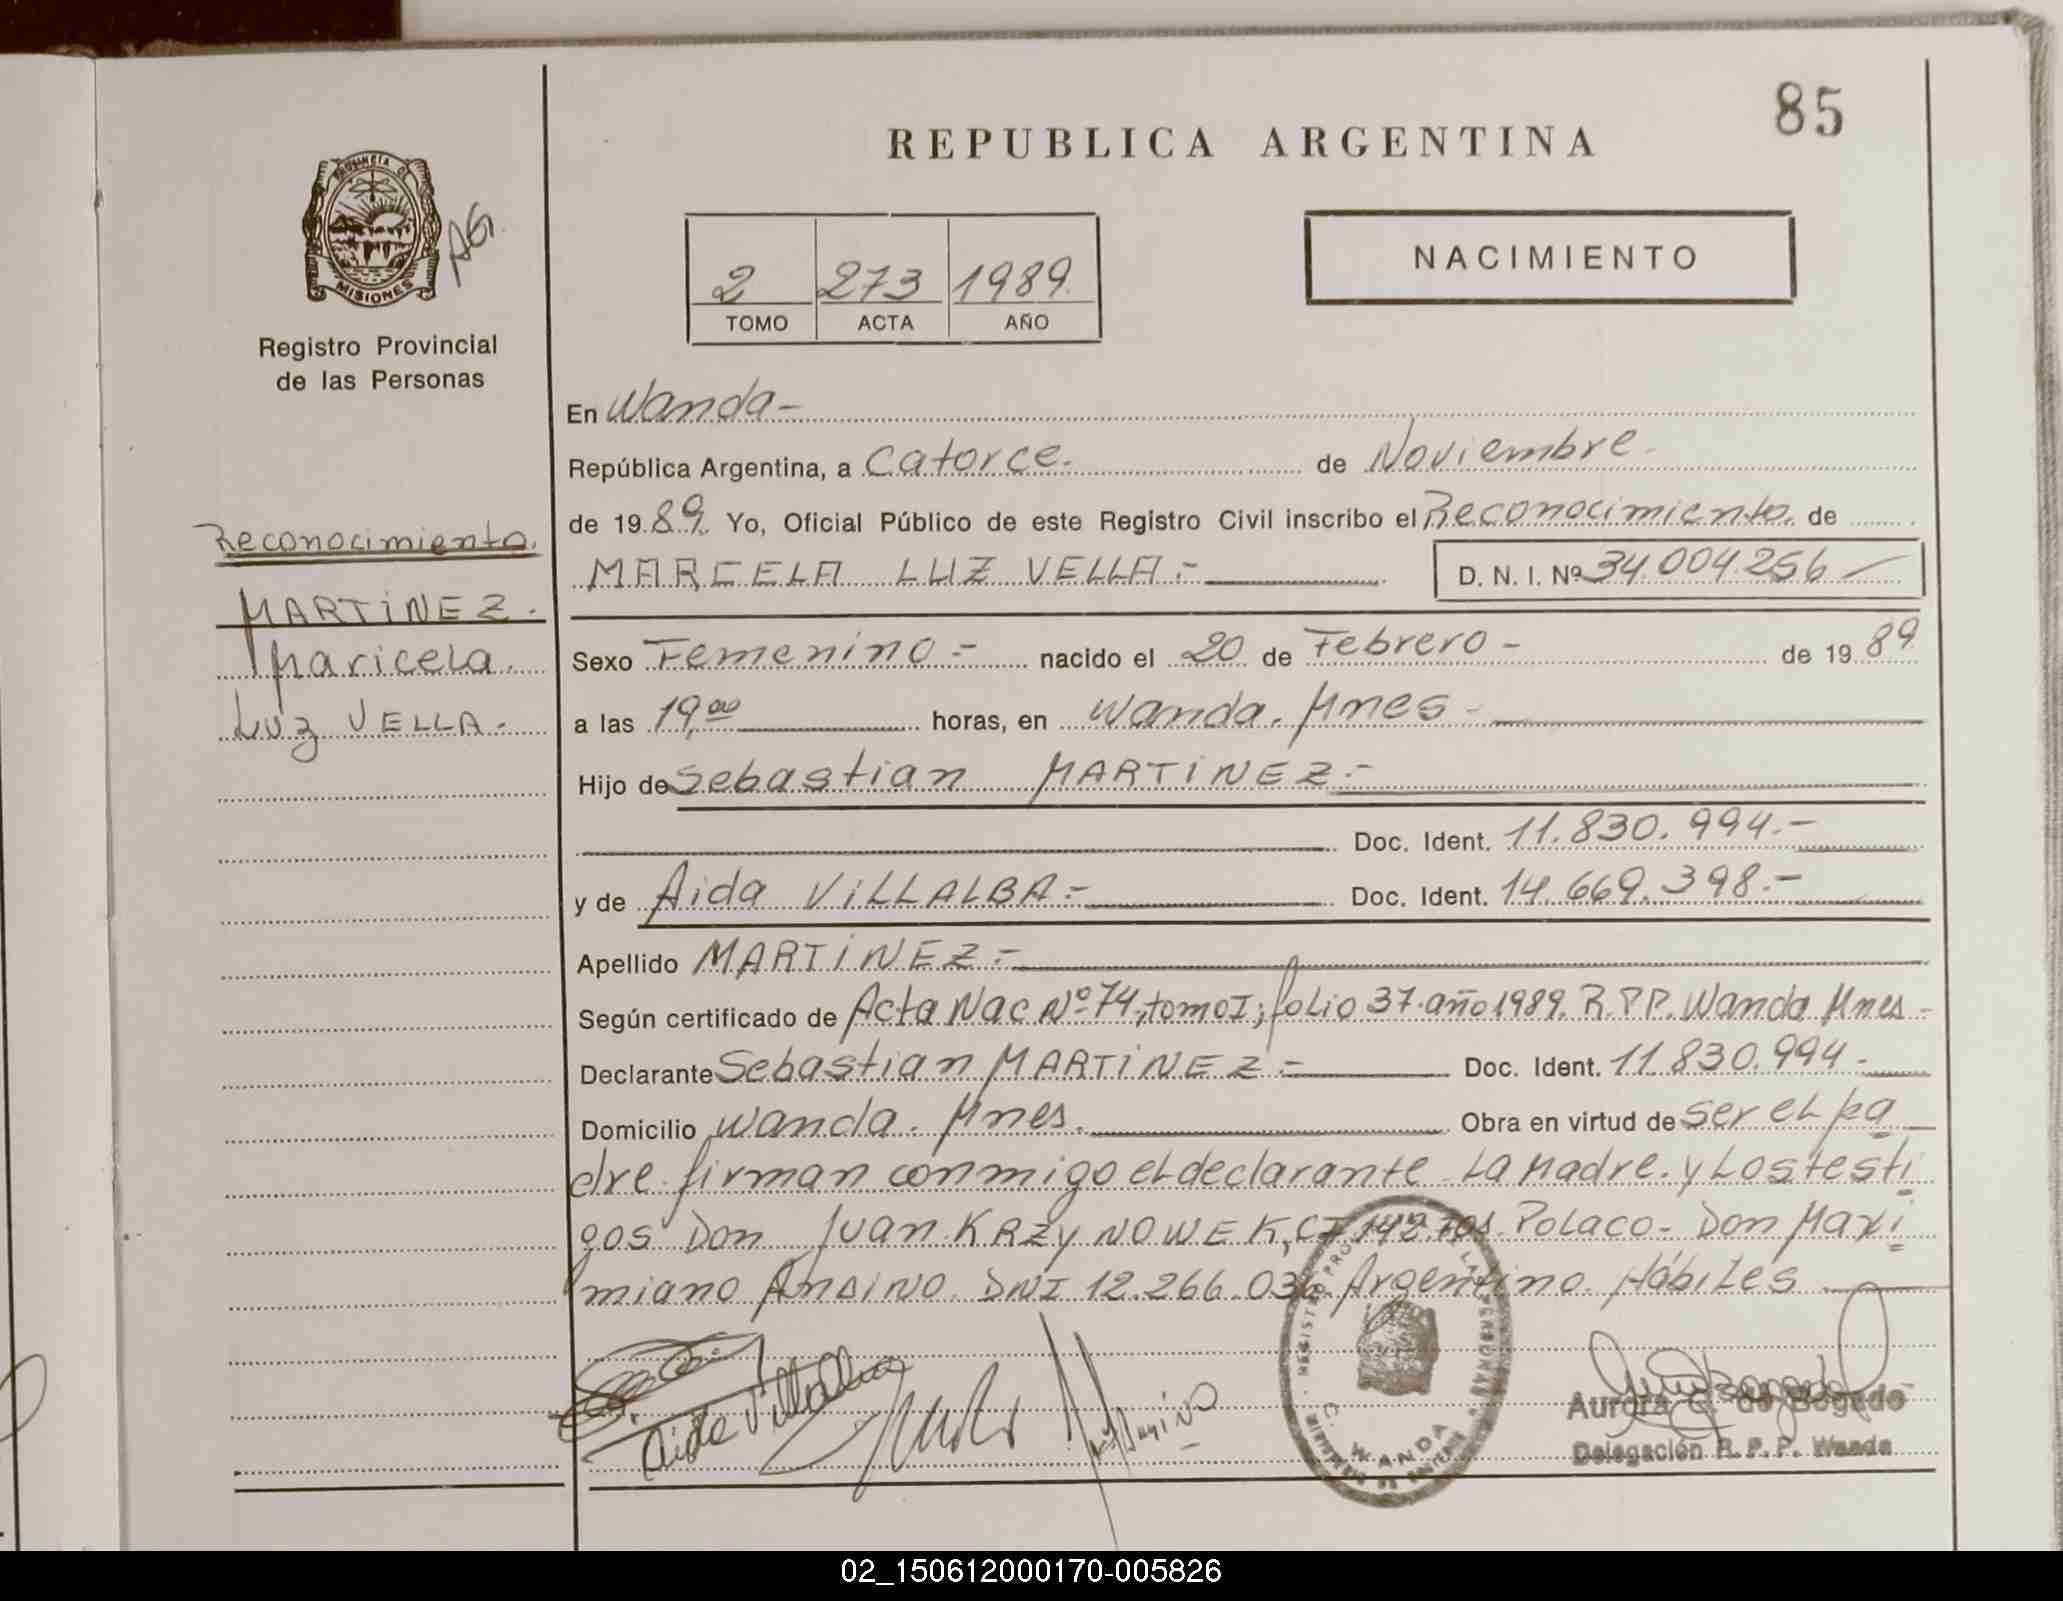 85
REPUBLICA ARGENTINA
PROVINCIA DE
MISIONES
AG.
2 273 1989.
TOMO ACTA AÑO
NACIMIENTO
Registro Provincial
de las Personas
En Wanda-
República Argentina, a Catorce. de Noviembre.
de 1989. Yo, Oficial Público de este Registro Civil inscribo el Reconocimiento. de
MARCELA LUZ VELLA.- D. N. I. Nº 34.004.256
Reconocimiento.
MARTINEZ.
Maricela.
Luz VELLA.
Sexo Femenino.- nacido el 20 de Febrero - de 1989
a las 19,00 horas, en Wanda. Mnes -
Hijo de Sebastian MARTINEZ.-
Doc. Ident. 11.830.994.-
y de Aida VILLALBA.- Doc. Ident. 14.669.398.-
Apellido MARTINEZ.-
Según certificado de Acta Nac Nº 74, tomo I; folio 37. año 1989. R.P.P. Wanda Mnes -
Declarante Sebastian MARTINEZ.- Doc. Ident. 11.830.994.
Domicilio Wanda. Mnes. Obra en virtud de ser el pa
dre. firman conmigo el declarante La Madre. y Los testi
gos Don Juan KRZYNOWEK, CI 142.701. Polaco - Don Maxi
miano DNI 12.266.034 Argentino. Hábiles
Aida Villalba
REGISTRO PROVINCIAL DE LAS PERSONAS
WANDA
Aurora G. de Bogado
Delegación R. P. P. Wanda
02_150612000170-005826